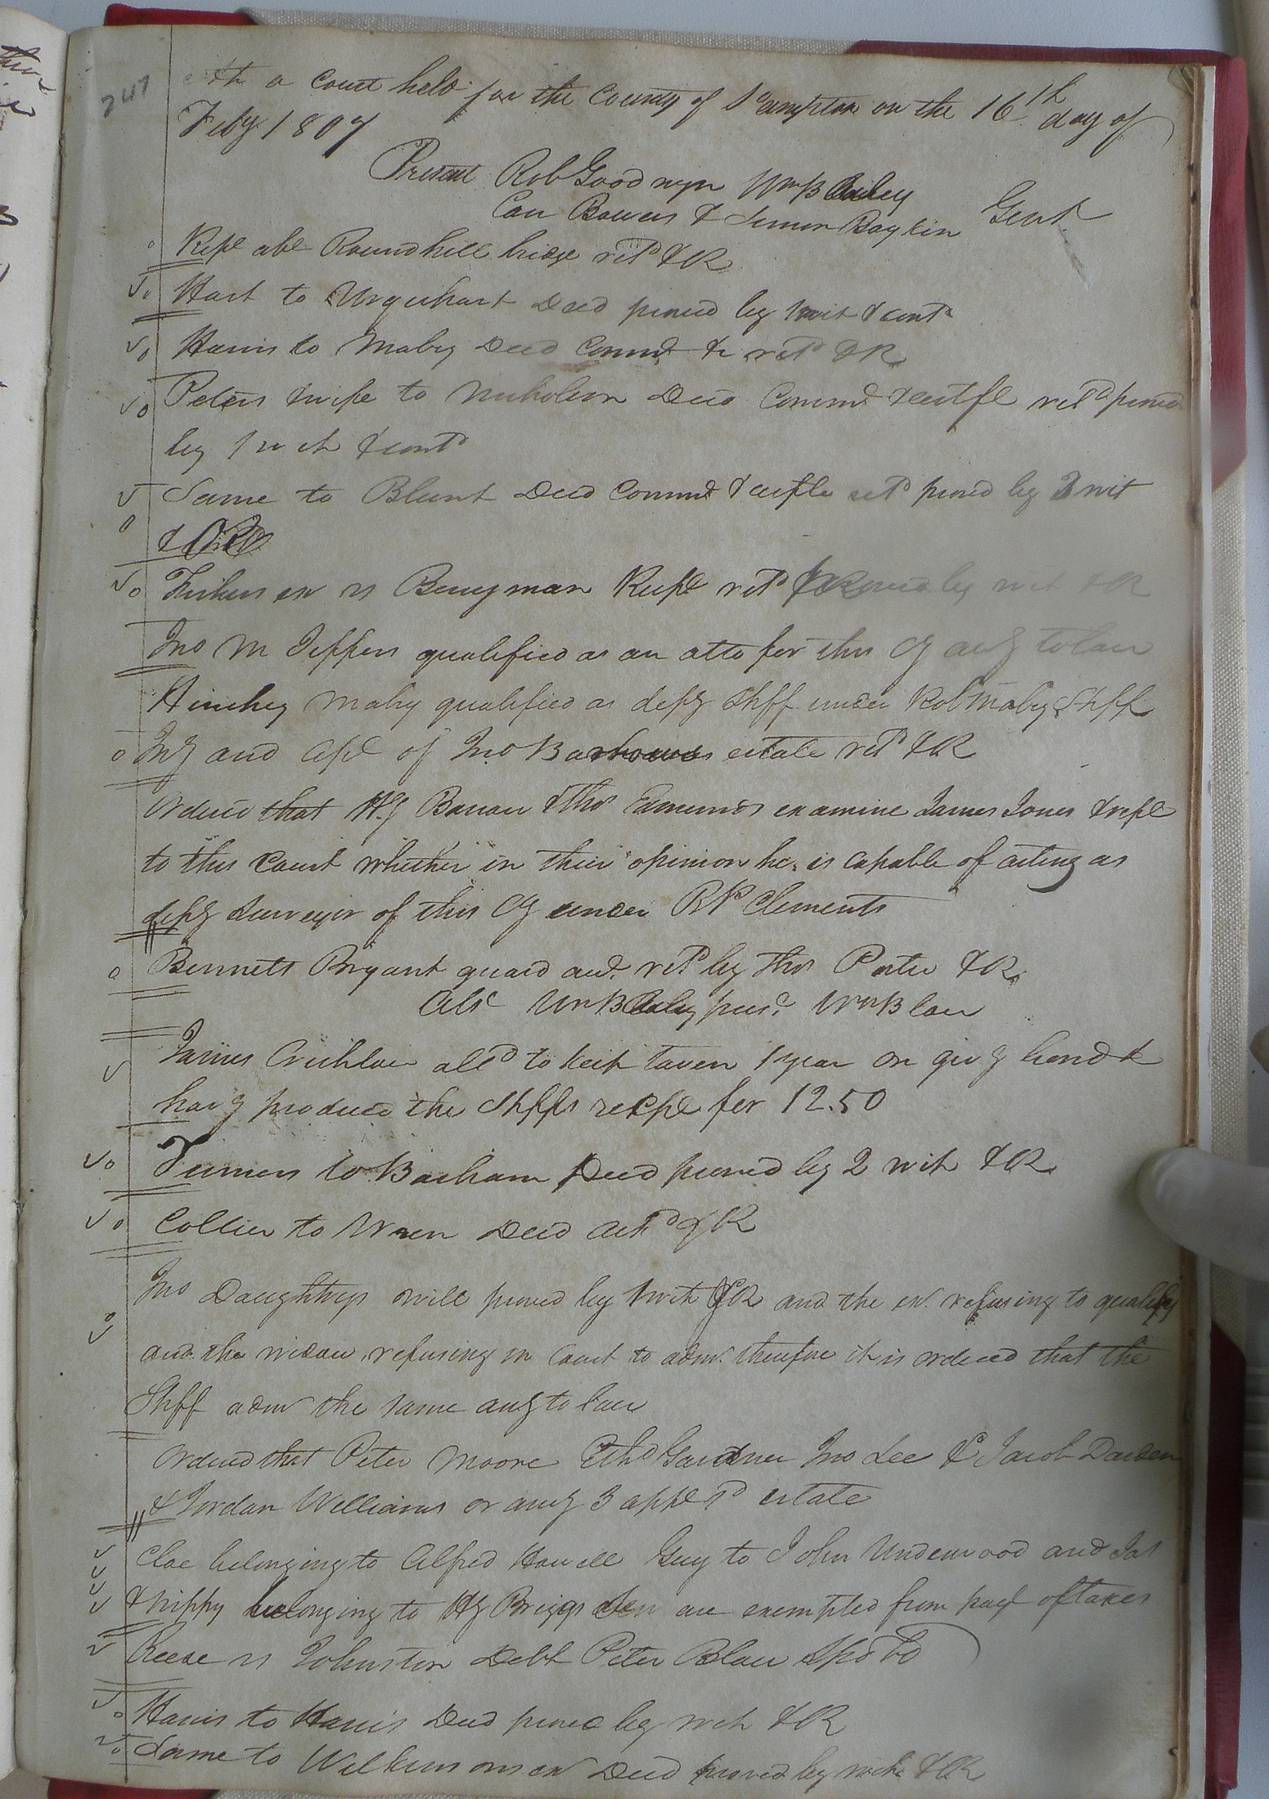 247
At a Court held for the County of S°ampton on the 16th day of
Feby 1807
Present Rob Goodwyn Wm B Bailey
Carr Bowers & Simon Boykin Gent
Rept abt Round hill bridge retd & R
Hart to Urquhart Deed proved by 1 wit & contd
Harris to Mabry Deed Commn & retd & R
Peters wife to Nicholson Deed Commn & certfe retd proved
by 1 wit & contd
Same to Blunt Deed Commn & certfe retd proved by 2 wit
& ORD
ex vs Berryman Rect retd proved by wit & R
Jno M Jeffers qualified as an atto for this Cy accg to law
Hinchey Mabry qualified as depy Shff under Rob Mabry Shff
Invy and apt of Jno Barhams estate retd & R
Ordered that Hy Banau & Thos Edmunds examine James Jones & rept
to this Court whether in their opinion he is capable of acting as
depy Surveyor of this Cy under B N Clements
Bennett Bryant guard acct retd by Thos Porter & R
Abs Wm B Bailey pres Wm Blow
James Crichlow alld to keep tavern 1 year on givg bond &
havg produced the Shffs recpt for 12.50
Turners to Barham Deed proved by 2 wit & R
Collier to Wren Deed ackd & R
Jno Daughtrys will proved by 1 wit & R and the ex refusing to qualify
and the widow refusing in Court to adm. therefore it is ordered that the
Shff adm the same accg to law
Ordered that Peter Moore Ethd Gardner Jno Lee & Jacob Darden
& Jordan Williams or any 3 appe sd estate
Cloe belonging to Alfred Howell Guy to John Underwood and Jas
& hippy belonging to Hy Briggs Sen are exempted from payt of taxes
Reese vs Johnston Debt Peter Blow Spd bd
Harris to Harris Deed proved by wit & R
Same to Wilkinson ex Deed proved by wit & R